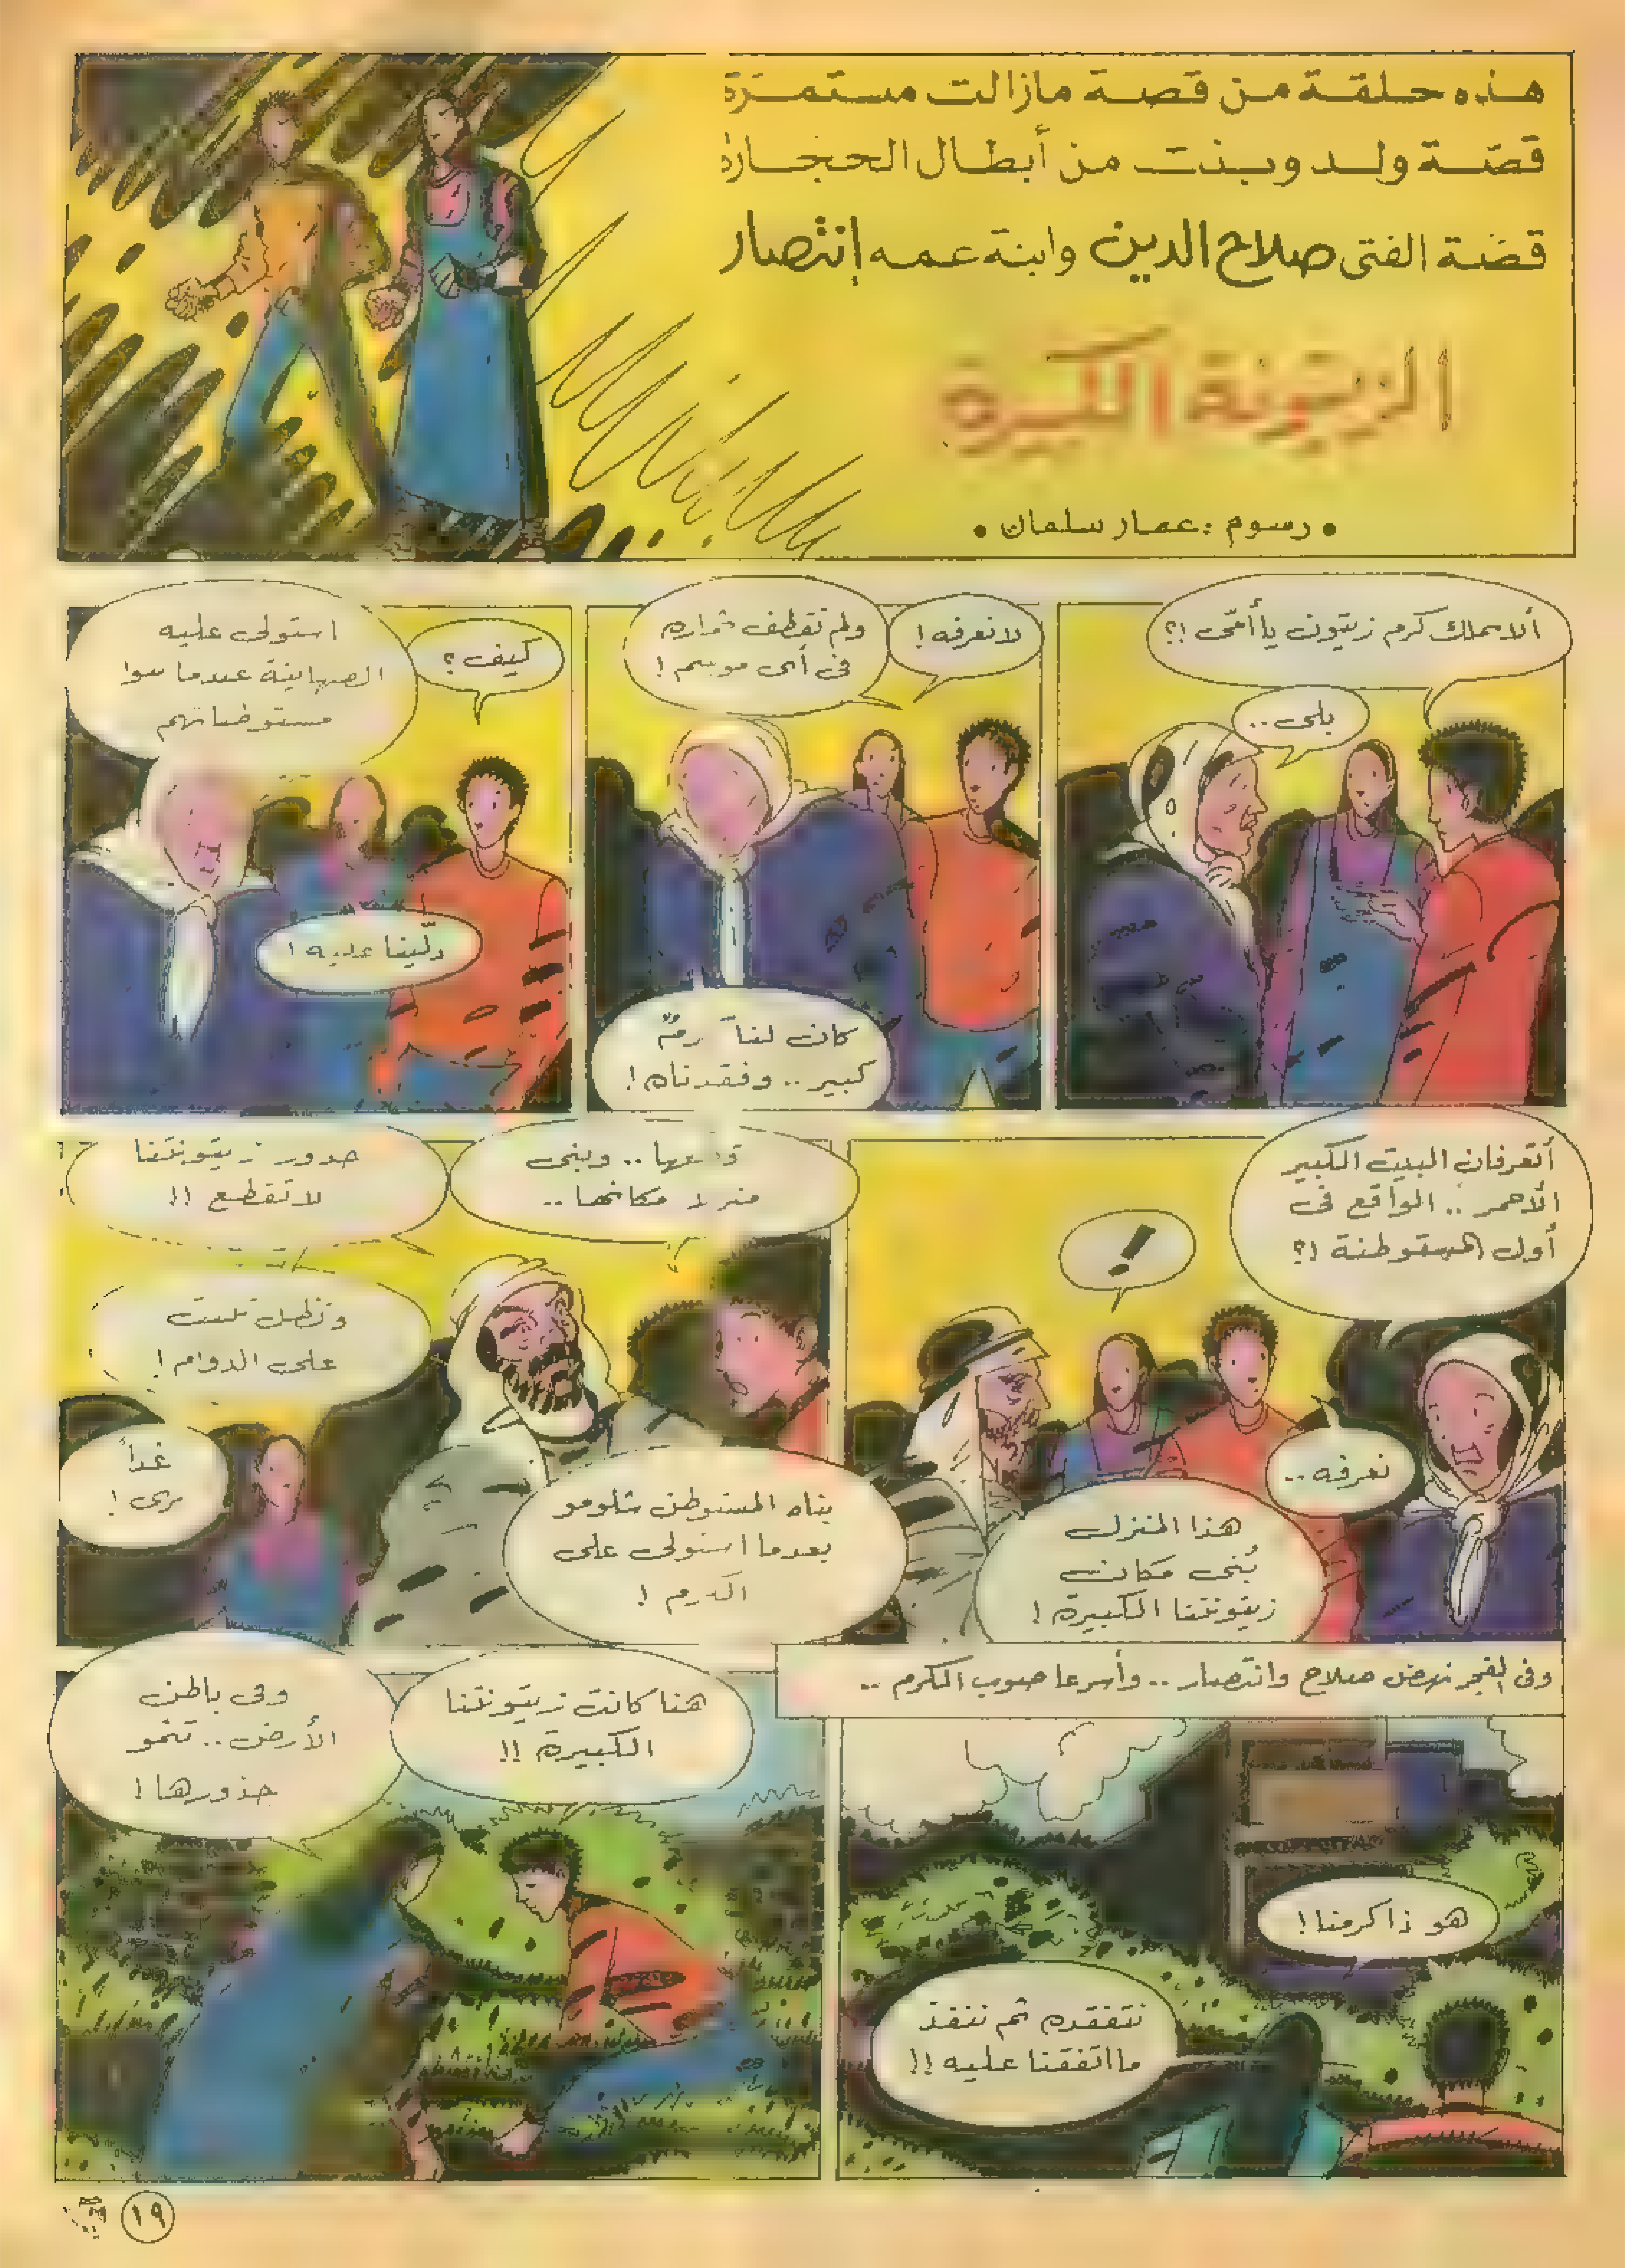 هذه حلقة من قصة مازالت مستمرة
قصة ولد وبنت من أبطال الحجارة
قصة الفتى صلاح الدين وابنة عمه إنتصار
الزيتونة الكبيرة
• رسوم : عمار سلمان •
ألا نملك كرم زيتون يا أمّي !؟
بلى ..
لا نعرفه !
ولم نقطف ثماره
في أي موسم !
كان لنا كرمٌ
كبير .. وفقدناه !
كيف ؟
استولى عليه
الصهاينة عندما بنوا
مستوطناتهم
دلّينا عليه !
أتعرفان البيت الكبير
الأحمر .. الواقع في
أول المستوطنة !؟
!
نعرفه ..
هذا المنزل
بُني مكان
زيتونتنا الكبيرة !
بناه المستوطن شلومو
بعدما استولى على
الكرم !
.. وبنى
منزلا مكانها ..
جذور زيتونتنا
لا تقطع !!
وتظل تنبت
على الدوام !
غداً
نرى !
وفي الفجر نهض صلاح وانتصار .. وأسرعا صوب الكرم ..
هو ذا كرمنا !
نتفقده ثم ننفذ
ما اتفقنا عليه !!
هنا كانت زيتونتنا
الكبيرة !!
وفي باطن
الأرض .. تنمو
جذورها !
١٩